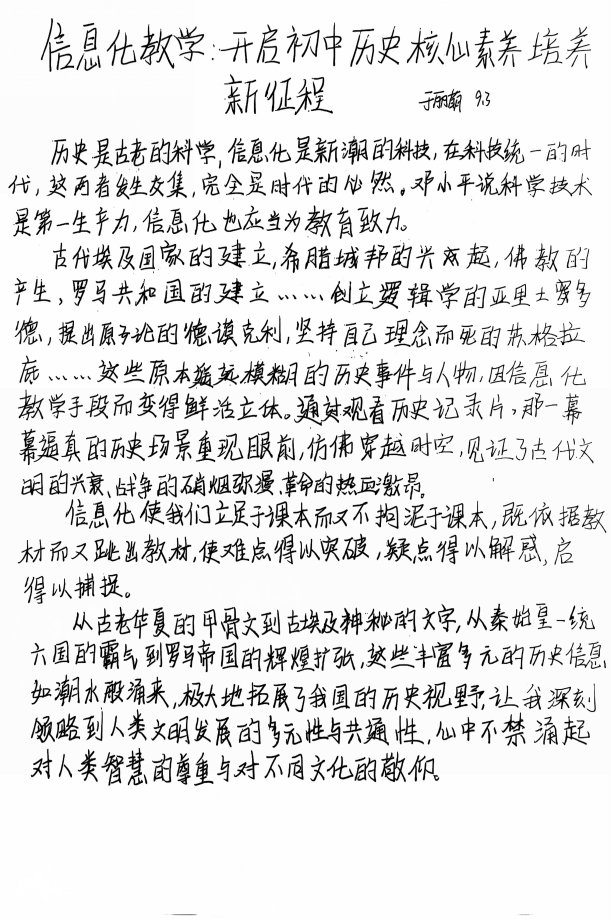 信息化教学:开启初中历史核心素养培养
新征程 于丽萌 9.3
历史是古老的科学,信息化是新潮的科技,在科技统一的时
代,这两者发生交集,完全是时代的必然。邓小平说科学技术
是第一生产力,信息化也应当为教育致力。
古代埃及国家的建立,希腊城邦的兴起,佛教的
产生,罗马共和国的建立……创立逻辑学的亚里士多
德,提出原子论的德谟克利,坚持自己理念而死的苏格拉
底……这些原本遥远模糊的历史事件与人物,因信息化
教学手段而变得鲜活立体。通过观看历史记录片,那一幕
幕逼真的历史场景重现眼前,仿佛穿越时空,见证了古代文
明的兴衰、战争的硝烟弥漫、革命的热血激昂。
信息化使我们立足于课本而又不拘泥于课本,既依据教
材而又跳出教材,使难点得以突破,疑点得以解惑,启
得以捕捉。
从古老华夏的甲骨文到古埃及神秘的文字,从秦始皇一统
六国的霸气到罗马帝国的辉煌扩张,这些丰富多元的历史信息
如潮水般涌来,极大地拓展了我国的历史视野,让我深刻
领略到人类文明发展的多元性与共通性,心中不禁涌起
对人类智慧的尊重与对不同文化的敬仰。